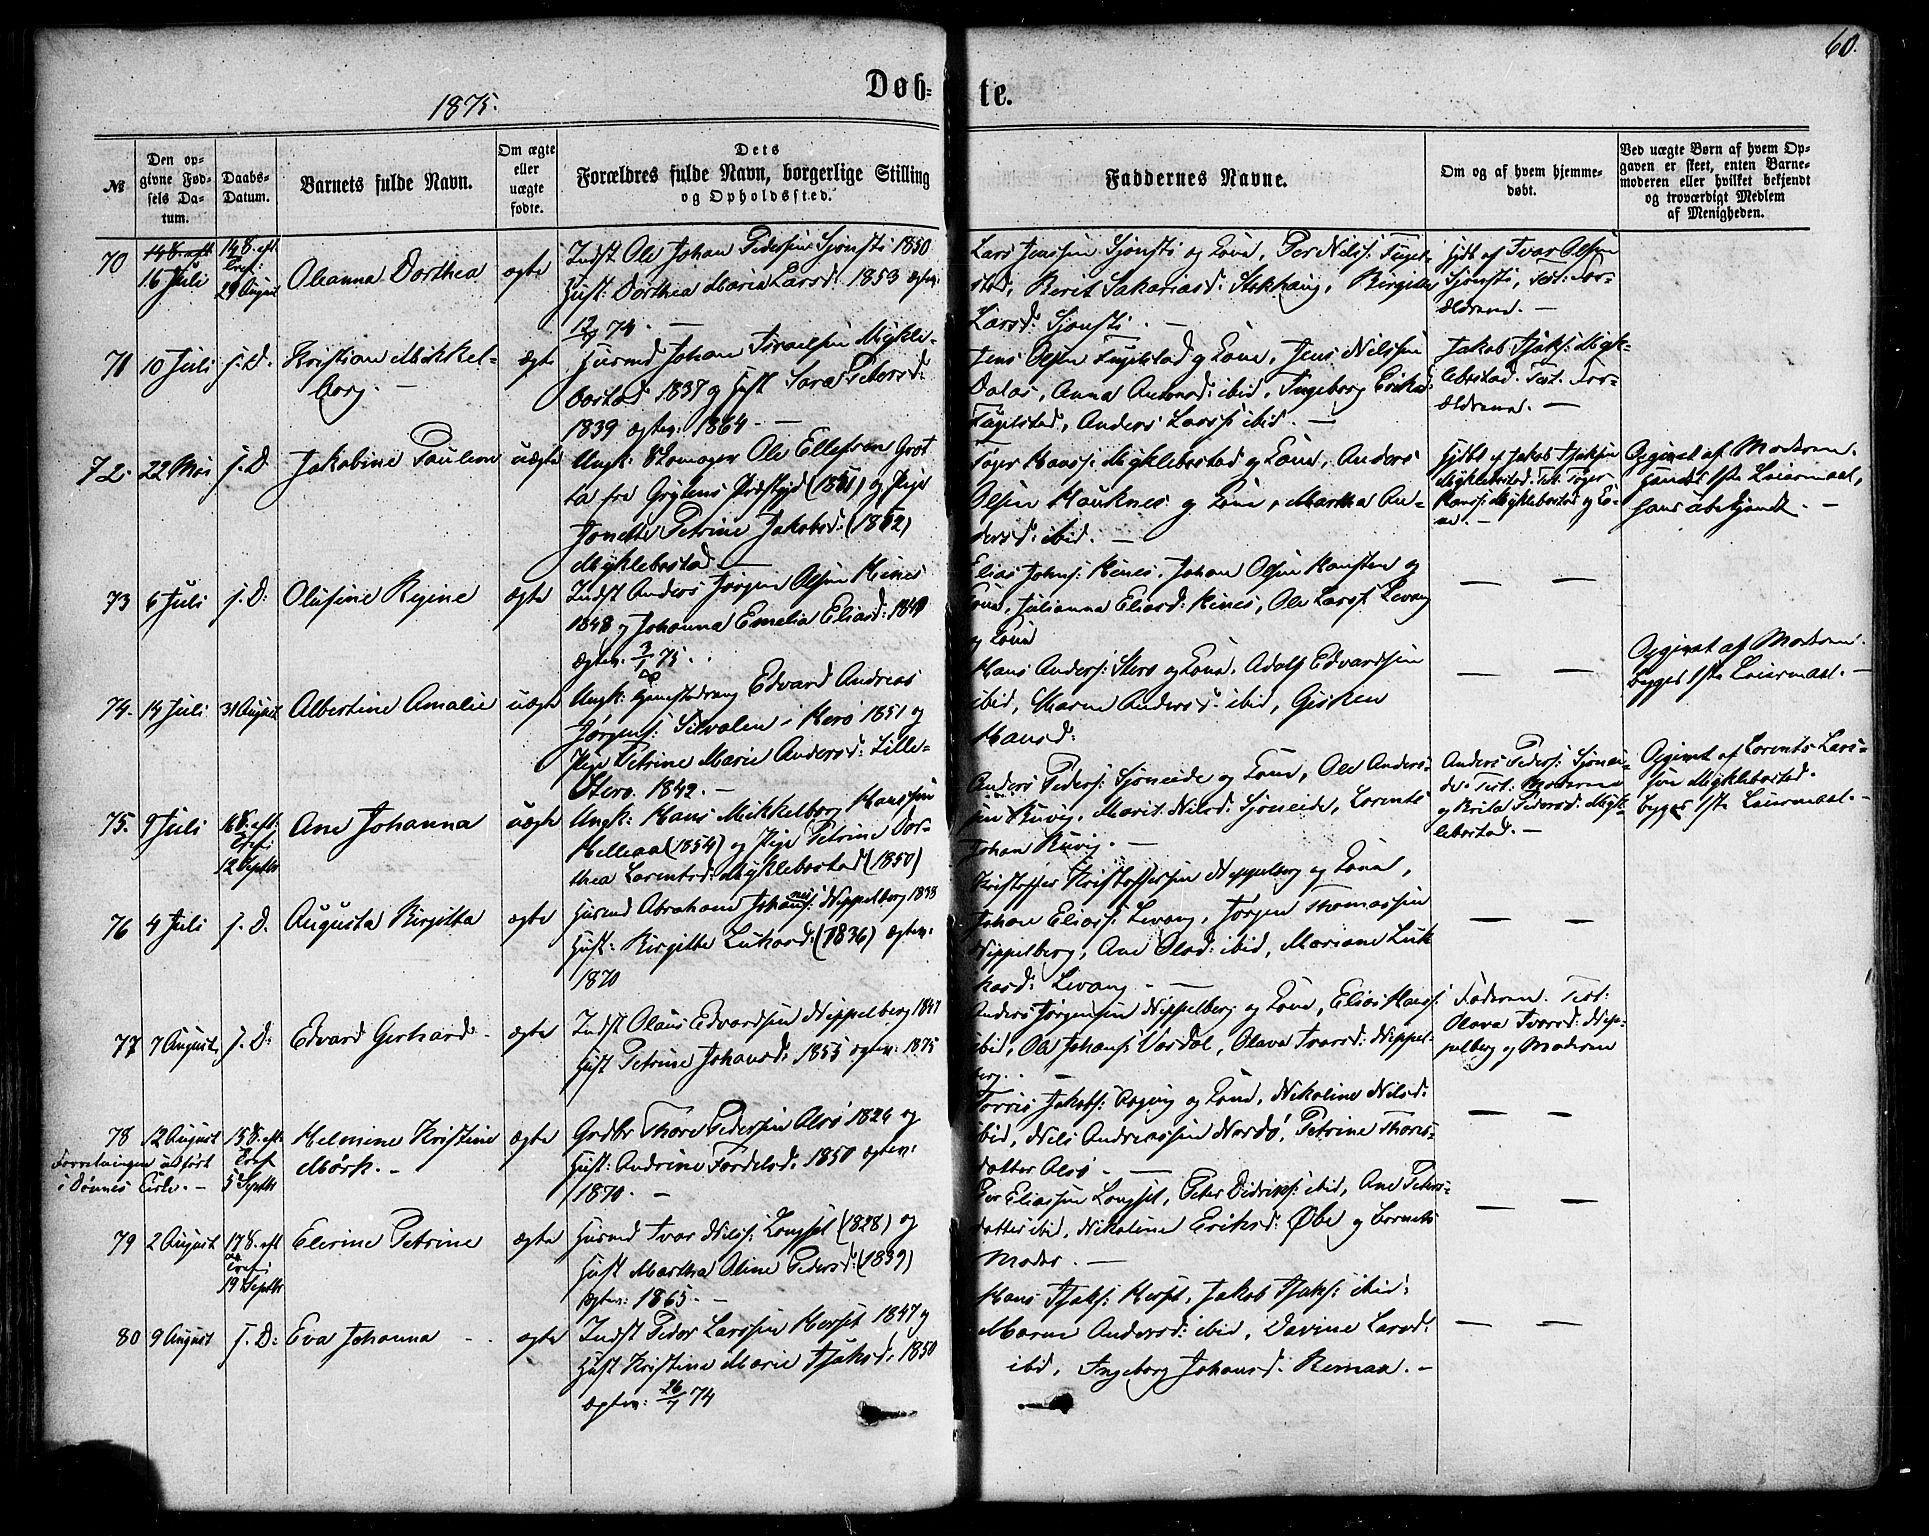 60.
1875.
Døb-
te.
№
Den op-
givne Fød-
sels Da-
tum.
Daabs-
Datum.
Barnets fulde Navn.
Om ægte
eller
uægte
fødte.
Dets
Forældres fulde Navn, borgerlige Stilling
og Opholdssted.
Faddernes Navne.
Om og af hvem hjemme-
døbt.
Ved uægte Børn af hvem Op-
gaven er skeet, enten Barne-
moderen eller hvilket bekjendt
og troværdigt Medlem
af Menigheden.
70
16 Juli
14 S. eft.
Tref:
29 August
Oleanna Dorthea
ægte
Indst Ole Johan Pedersen Sjonsti 1850
Hust: Dorthea Maria Larsd: 1853 ægtev:
74. —
Lars Jenssen Sjonsti og Kone, Per Nilss:
Berit Sakariasd: Stokhaug, Birgitte
Larsd: Sjonsti. —
Hjdt af Ivar Olsen
Sjonsti, Test: For-
ældrene. —
71
10 Juli
s. D.
Kristian Mikkel-
borg. —
ægte
Husmd Johan Israelsen Mykle-
bostad 1837 og Hust Sara Petersd:
1839 ægtev: 1864. —
Jens Olsen Fugelstad og Kone, Jens Nilssen
Dalos, Anna Antonsd: ibid, Ingeborg Eriksd:
Fugelstad, Anders Larss: ibid. —
Jakob Isaks: Myk-
lebostad. Test. For-
ældrene. —
72.
22 Mai
s. D.
Jakobine Pauline
uægte
Ungk: Skomager Ole Ellefsen Grot
ta fra Grytens Præstgjd (1851) og Pige
Jonette Petrine Jakobsd: (1852)
Myklebostad —
Tøger Hanss: Myklebostad og Kone, Anders
Olsen Hauknes og Kone, Martha An-
dersd: ibid. —
Hjdbt af Jakob Isaksen
Myklebostad. Test. Tøger
Hanss: Myklebostad og Ko-
ne. —
Opgivet af Moderen.
Hendes 1ste Leiermaal,
hans ubekjendt. —
73
6 Juli
s. D:
Olufine Regine
ægte
Indst Anders Jørgen Olsen Hines
1848 og Johanna Emelia Eliasd: 1849
Ægtev. 75.
Elias Johns: Hines, Johan Olsen Kansten og
Kone, Julianna Eliasd: Hines, Ole Larss: Levang
og Kone
— —
74.
14 Juli
31 August
Albertine Amalie
uægte
Ungk: Edvard Andreas
Jørgens: Silvalen i Herø 1851 og
Pige Petrine Marie Andersd: Lille-
Stero. 1842. —
Hans Anders: Stero og Kone, Adolf Edvardsen
ibid, Maren Andersd: ibid, Gisken
Hansd:
— —
Opgivet af Moderen.
Begges 1ste Leiermaal. —
75.
9 Juli
16 S. eft:
Tref:
12 Septbr
Ane Johanna
uægte
Ungk: Hans Mikkelborg Hanssen
Helleaa (1854) og Pige Petrine Dor-
thea Lorentsd: Myklebostad (1850)
Anders Peders: Sjoneide og Kone, Ole Anders-
sen Buvig, Marit Nilsd: Sjoneide, Lorents
Johan Buvig. —
Anders Peders: Sjonei-
de. Test. Moderen
og Berita Pedersd: Myk-
lebostad. —
Opgivet af Lorents Lars-
sen Myklebostad.
begges 1ste Leiermaal. —
76
4 Juli
s. D.
Augusta Birgitta
ægte
Husmd Abraham Johannes: Neppelberg 1838
Hust: Birgitte Lukasd: (1836) ægtev:
1870
Kristoffer Kristoffersen Neppelberg og Kone,
Johan Eliass: Levang, Jørgen Thomassen
Neppelberg, Ane Olsd: ibid, Mariane Luk
kasd: Levang. —
— —
77
7 August
s. D:
Edvard Gerhard
ægte
Indst Olaus Edvardsen Neppelberg 1847
Hust Petrine Johansd: 1855 ægtev: 1875
Anders Jørgensen Neppelberg og Kone, Elias Hanss:
ibid, Ole Johans: Vardal, Olava Ivarsd: Neppel-
berg. —
Faderen. Test:
Olava Ivarsd: Nep-
pelberg og Moderen
78
Forretningen udført
i Dønnes Kirke. —
12 August
15 S. eft
Tref
5 Septbr
Helmine Kristine
Mørk. —
ægte
Grdbr Thore Pedersen Alsø 1826 og
Hust: Andrine Tordelsd: 1850 ægtev:
1870. —
Torris Jakobs: og Kone, Nikoline Nilsd:
ibid, Nils Andreassen Nordø, Petrine Thores-
datter Alsø —
— —
79
2 August
17 S. eft
Tref:
19 Septbr
Elerine Petrine
ægte
Husmd Ivar Nils: Longset (1828) og
Hust Martha Oline Pedersd: (1839)
Ægtev: 1865. —
Per Eliassen Longset, Peter Didriks: ibid, Ane Peters-
datter ibid, Nikoline Eriksd: Øbe og Barnets
Moder. —
— —
80
9 August
s. D:
Eva Johanna
ægte
Indst Peder Larssen Herset 1847 og
Hust Kristine Marie Isaksd: 1850
ægtev: 26/7 74
Hans Isaks: Herset, Jakob Isaks: ibid:
Maren Andersd: ibid, Davine Larsd:
ibid, Ingeborg Johansd: Reman. —
— —